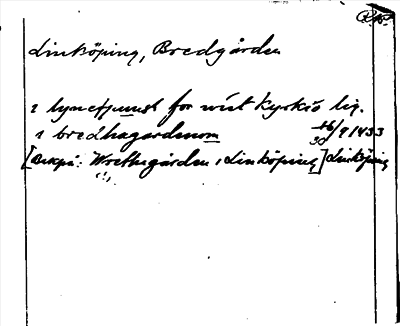 Linköping, Bredgården
i lynefpunst for wást kyrkio lig.
i bredhagardenom 16/9 1433
30
[Wretagården i Linköping] Linköping